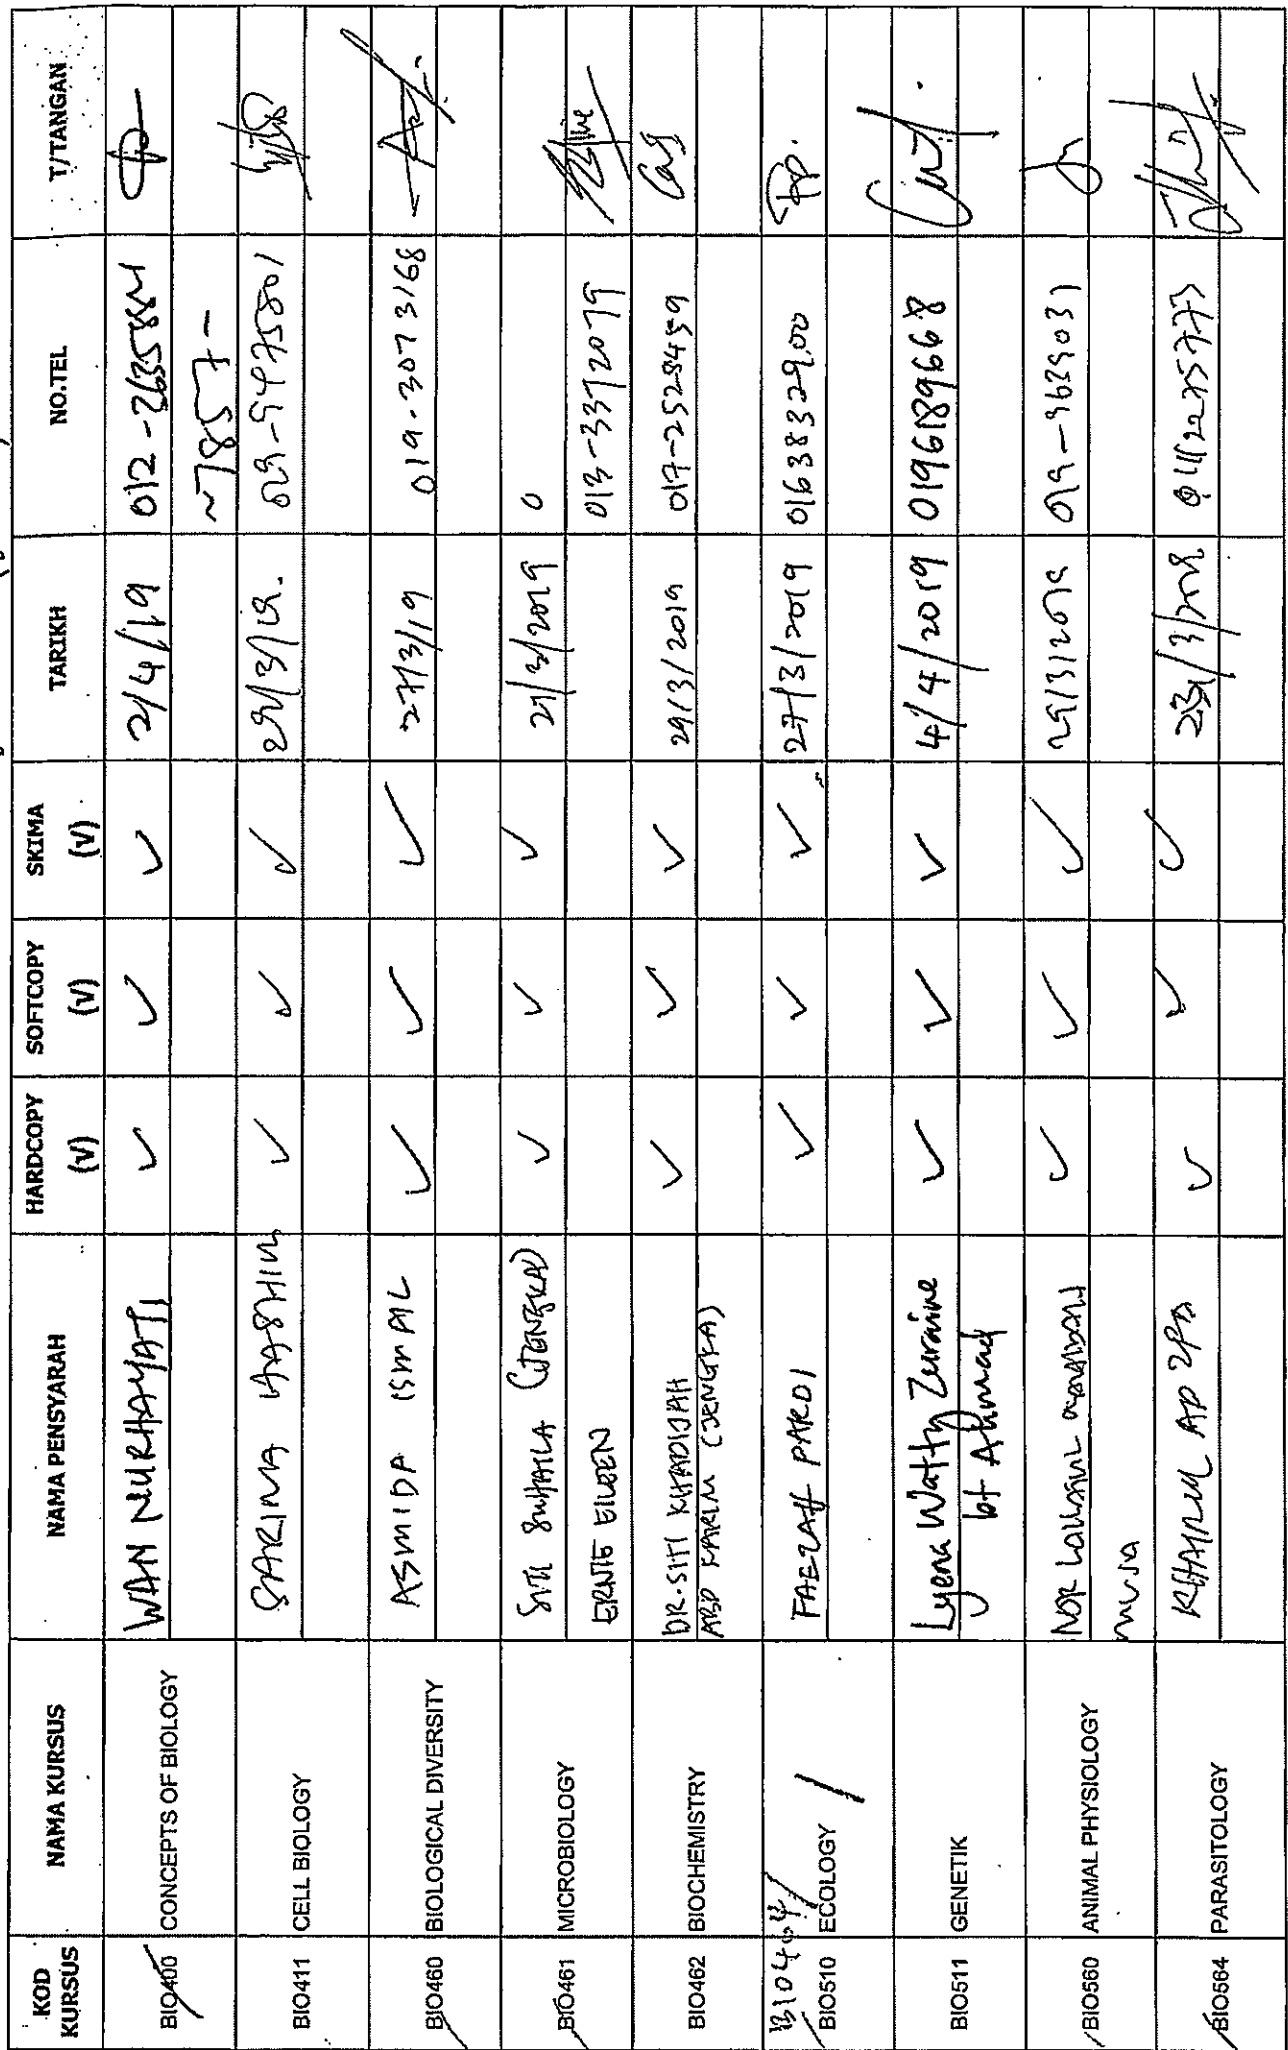 KOD KURSUS NAMA KURSUS NAMA PENSYARAH HARDCOPY (V) SOFTCOPY (V) SKIMA (V) TARIKH NO.TEL T/TANGAN
BIO400 CONCEPTS OF BIOLOGY WAN NURHAYATI ✓ ✓ ✓ 2/4/19 012-2635884
~7857-
BIO411 CELL BIOLOGY SARINA HASHIM ✓ ✓ ✓ 29/3/19. 019-9475801
BIO460 BIOLOGICAL DIVERSITY ASMIDA ISMAIL ✓ ✓ ✓ 27/3/19 019-3073168
BIO461 MICROBIOLOGY SITI SUHAILA (JENGKA) ✓ ✓ ✓ 27/3/2019 0
ERNIE EILEEN 013-3372079
BIO462 BIOCHEMISTRY DR. SITI KHADIJAH ✓ ✓ ✓ 29/3/2019 017-2528459
ABD KARIM (JENGKA)
BIO404/
BIO510 ECOLOGY / FAEZAH PARDI ✓ ✓ ✓ 27/3/2019 0163832900
BIO511 GENETIK Lyena Watty Zuraine ✓ ✓ ✓ 4/4/2019 0196189668
bt Ahmad
BIO560 ANIMAL PHYSIOLOGY NOR ✓ ✓ ✓ 29/3/2019 019-9639031
musa
BIO564 PARASITOLOGY KHAIRUL ✓ ✓ ✓